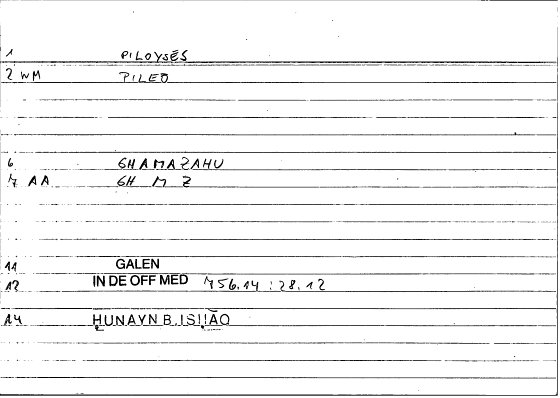 1 PILOYSĒS
2 WM PILEO
6 GHAMAZAHU
7 AA GH M Z
11 GALEN
12 IN DE OFF MED 756.14 : 28.12
14 ḤUNAYN B. ISḤĀQ